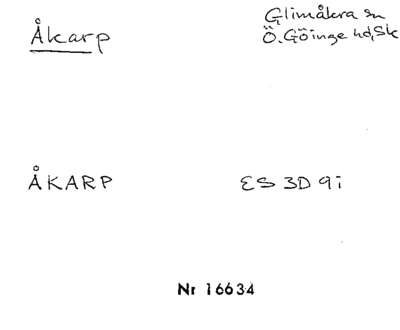 Åkarp
Glimåkra sn
Ö. Göinge hd, Sk
ÅKARP ES 3D 9i
Nr 16634